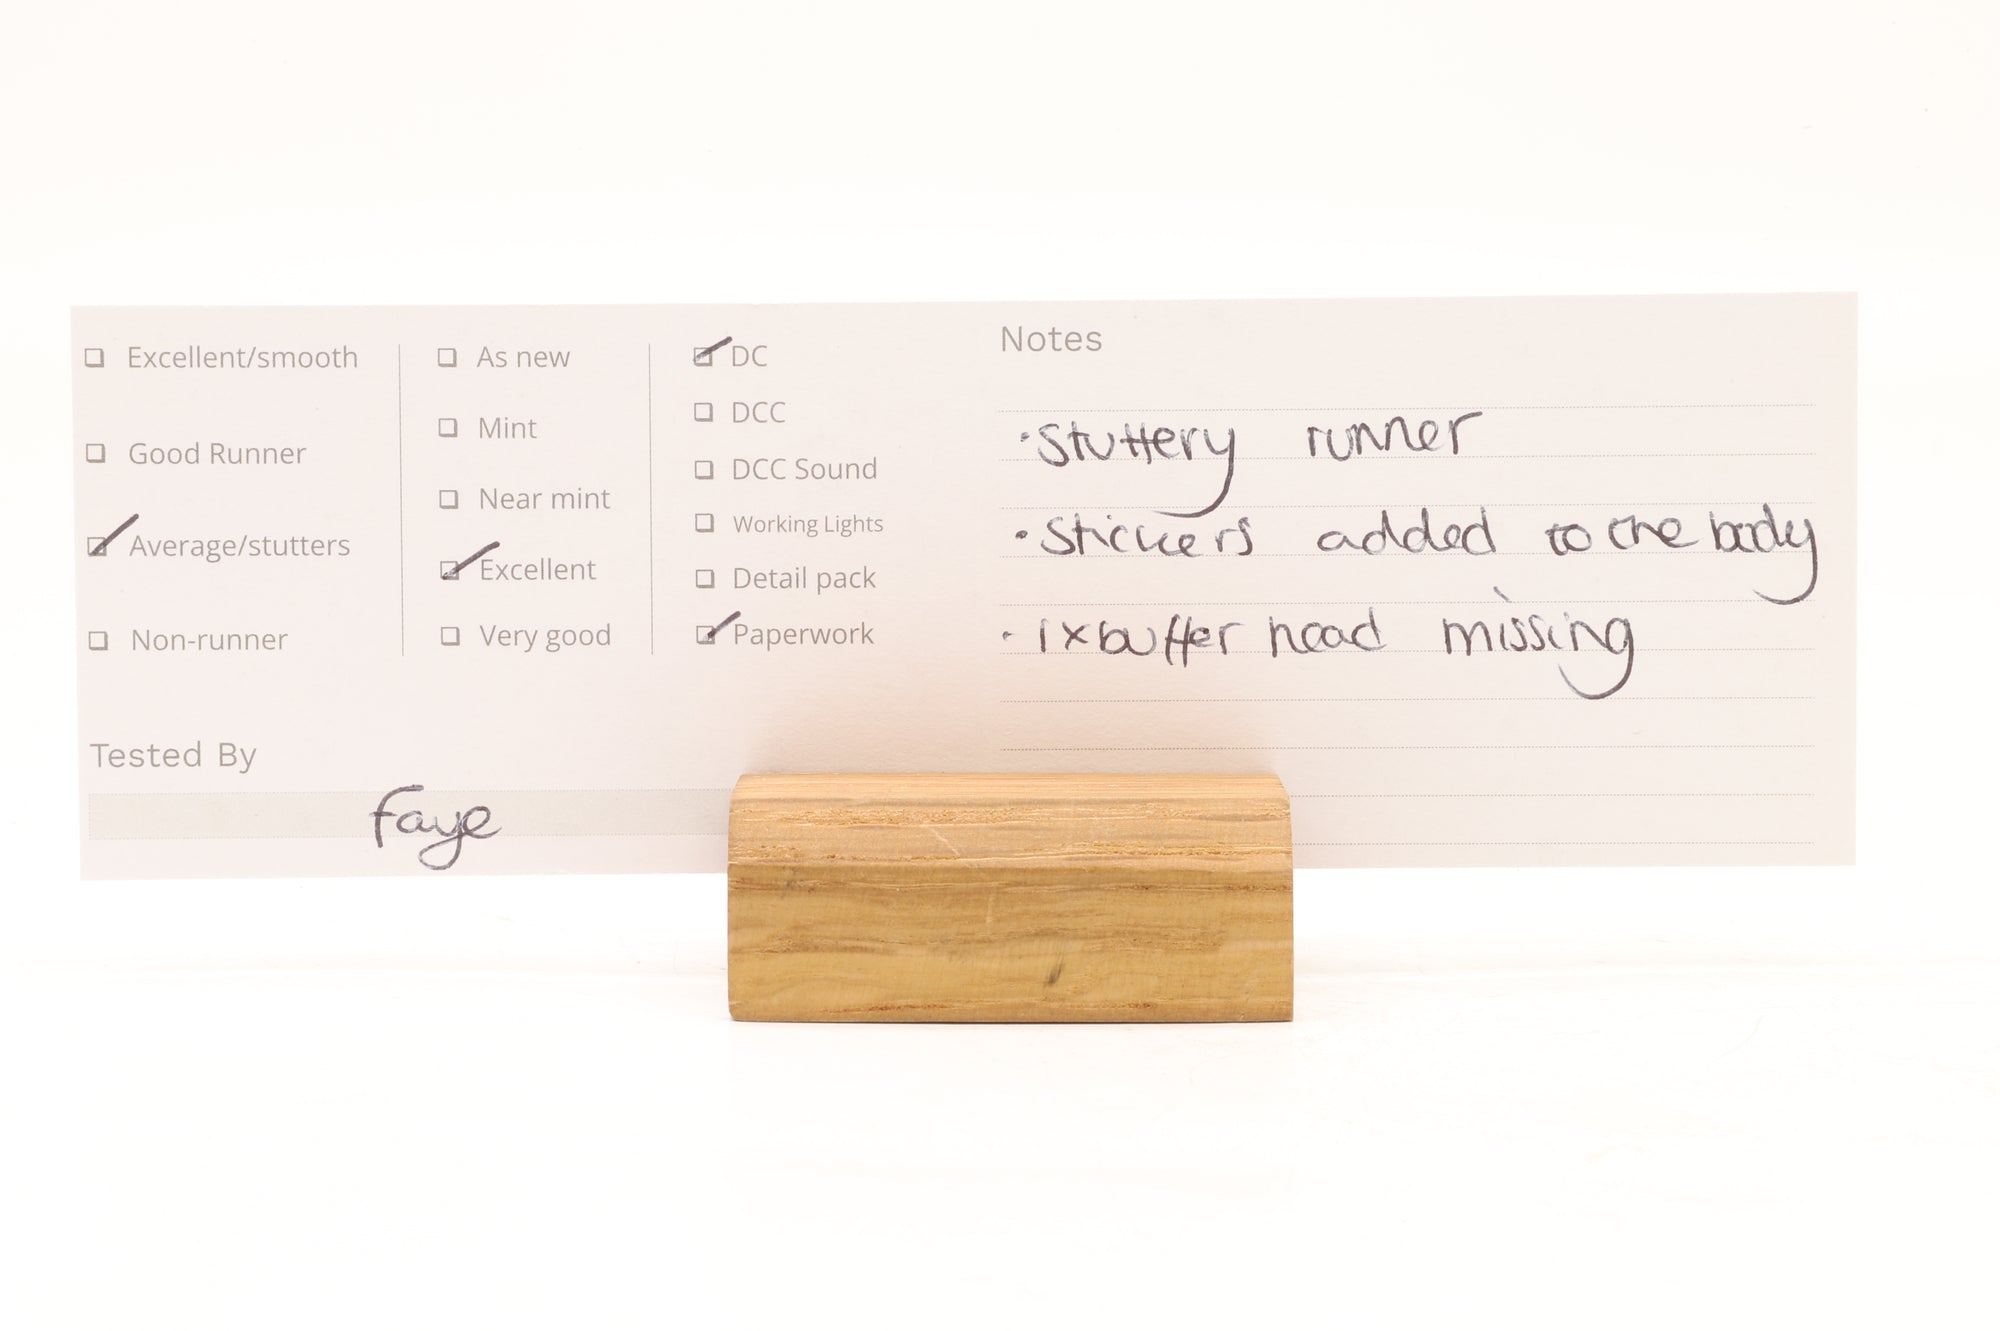 Excellent/smooth
Good Runner
Average/stutters
Non-runner
As new
Mint
Near mint
Excellent
Very good
DC
DCC
DCC Sound
Working Lights
Detail pack
Paperwork
Tested By
Faye
Notes
• Stuttery runner
• Stickers added to the body
• 1x buffer head missing